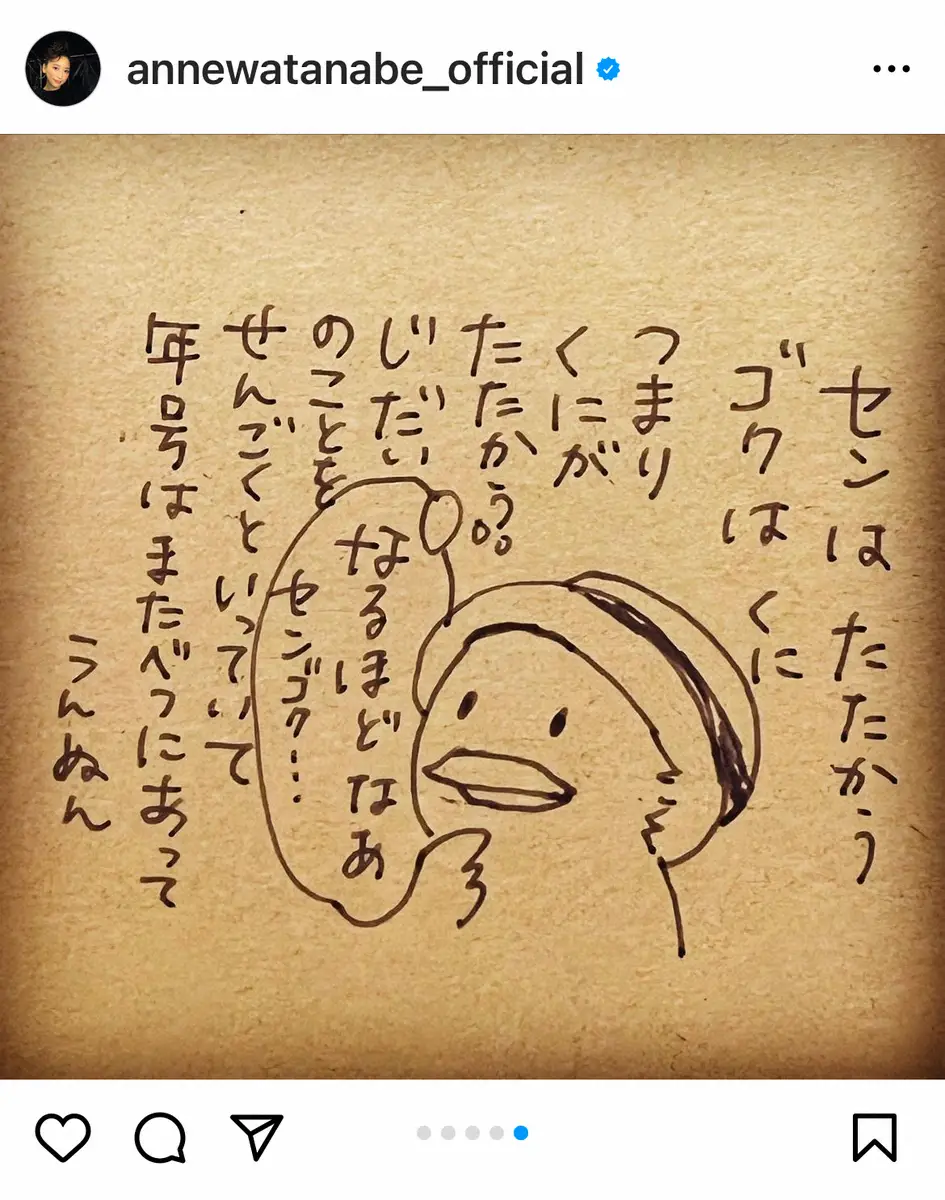 annewatanabe_official
センは たたかう
ゴクは くに
つまり
くにが
たたかう。
じだい
のことを
せんごくと いっていて
年号は またべつにあって
うんぬん
なるほどなぁ
センゴク…